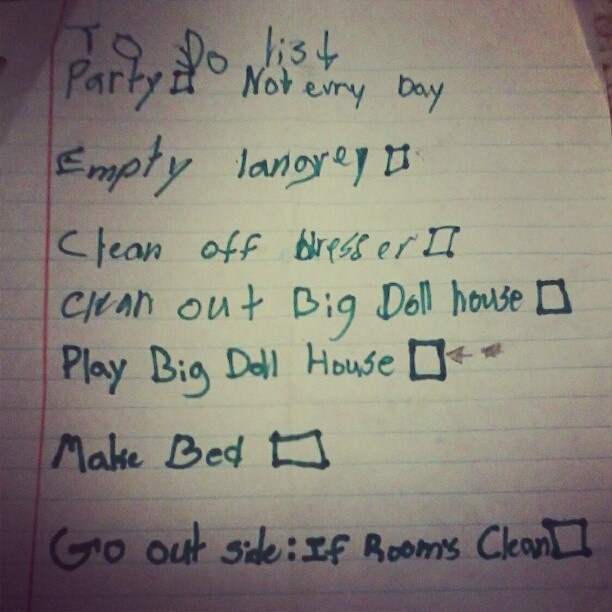 To Do list
Party □ Not evry Day
Empty langrey □
Clean off dresser □
Clean out Big Doll house □
Play Big Doll House □ ←
Make Bed □
Go out side: If Room's Clean □